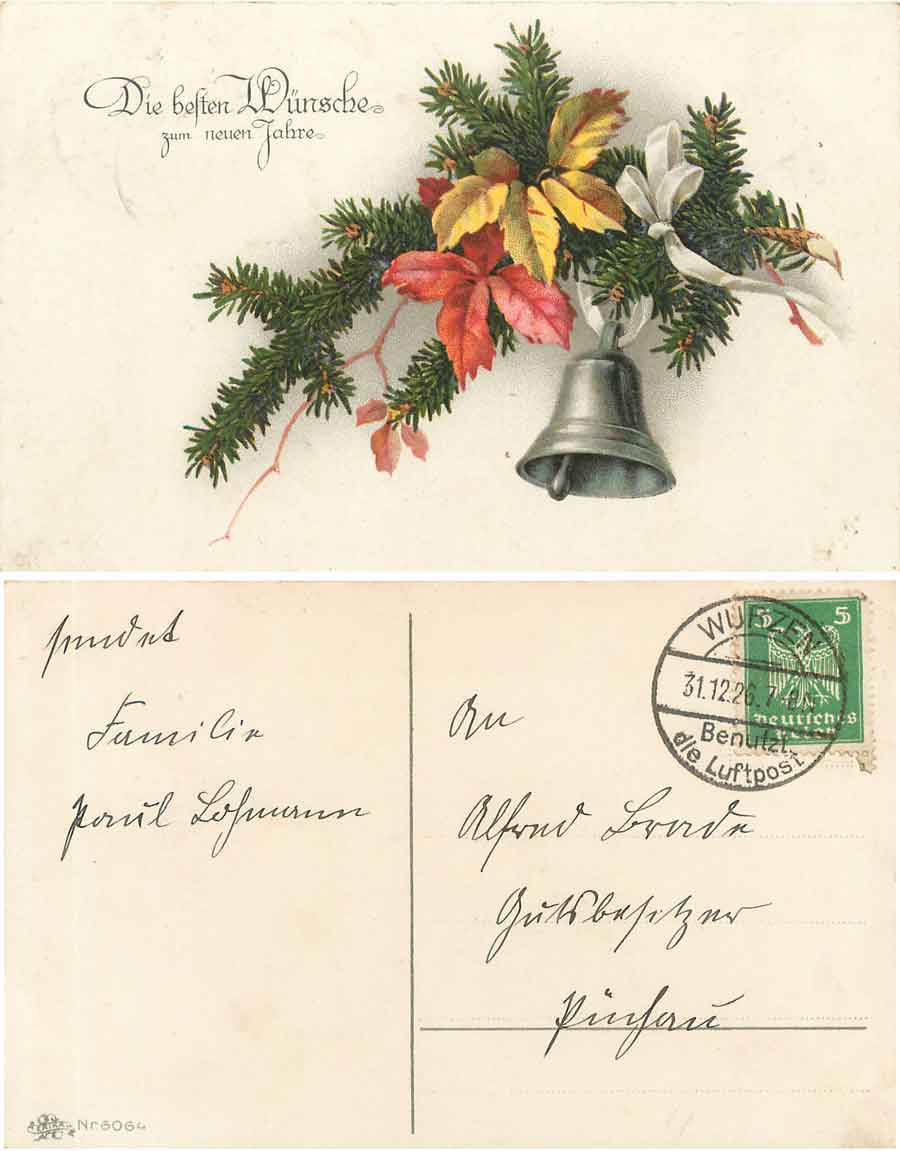 Die besten Wünsche
zum neuen Jahre
sendet
Familie
Paul Lohmann
An
Alfred Brade
Gutsbesitzer
Püchau
WURZEN
31.12.26.7-8N
Benutzt
die Luftpost
5 5
Deutsches
Nr. 6064